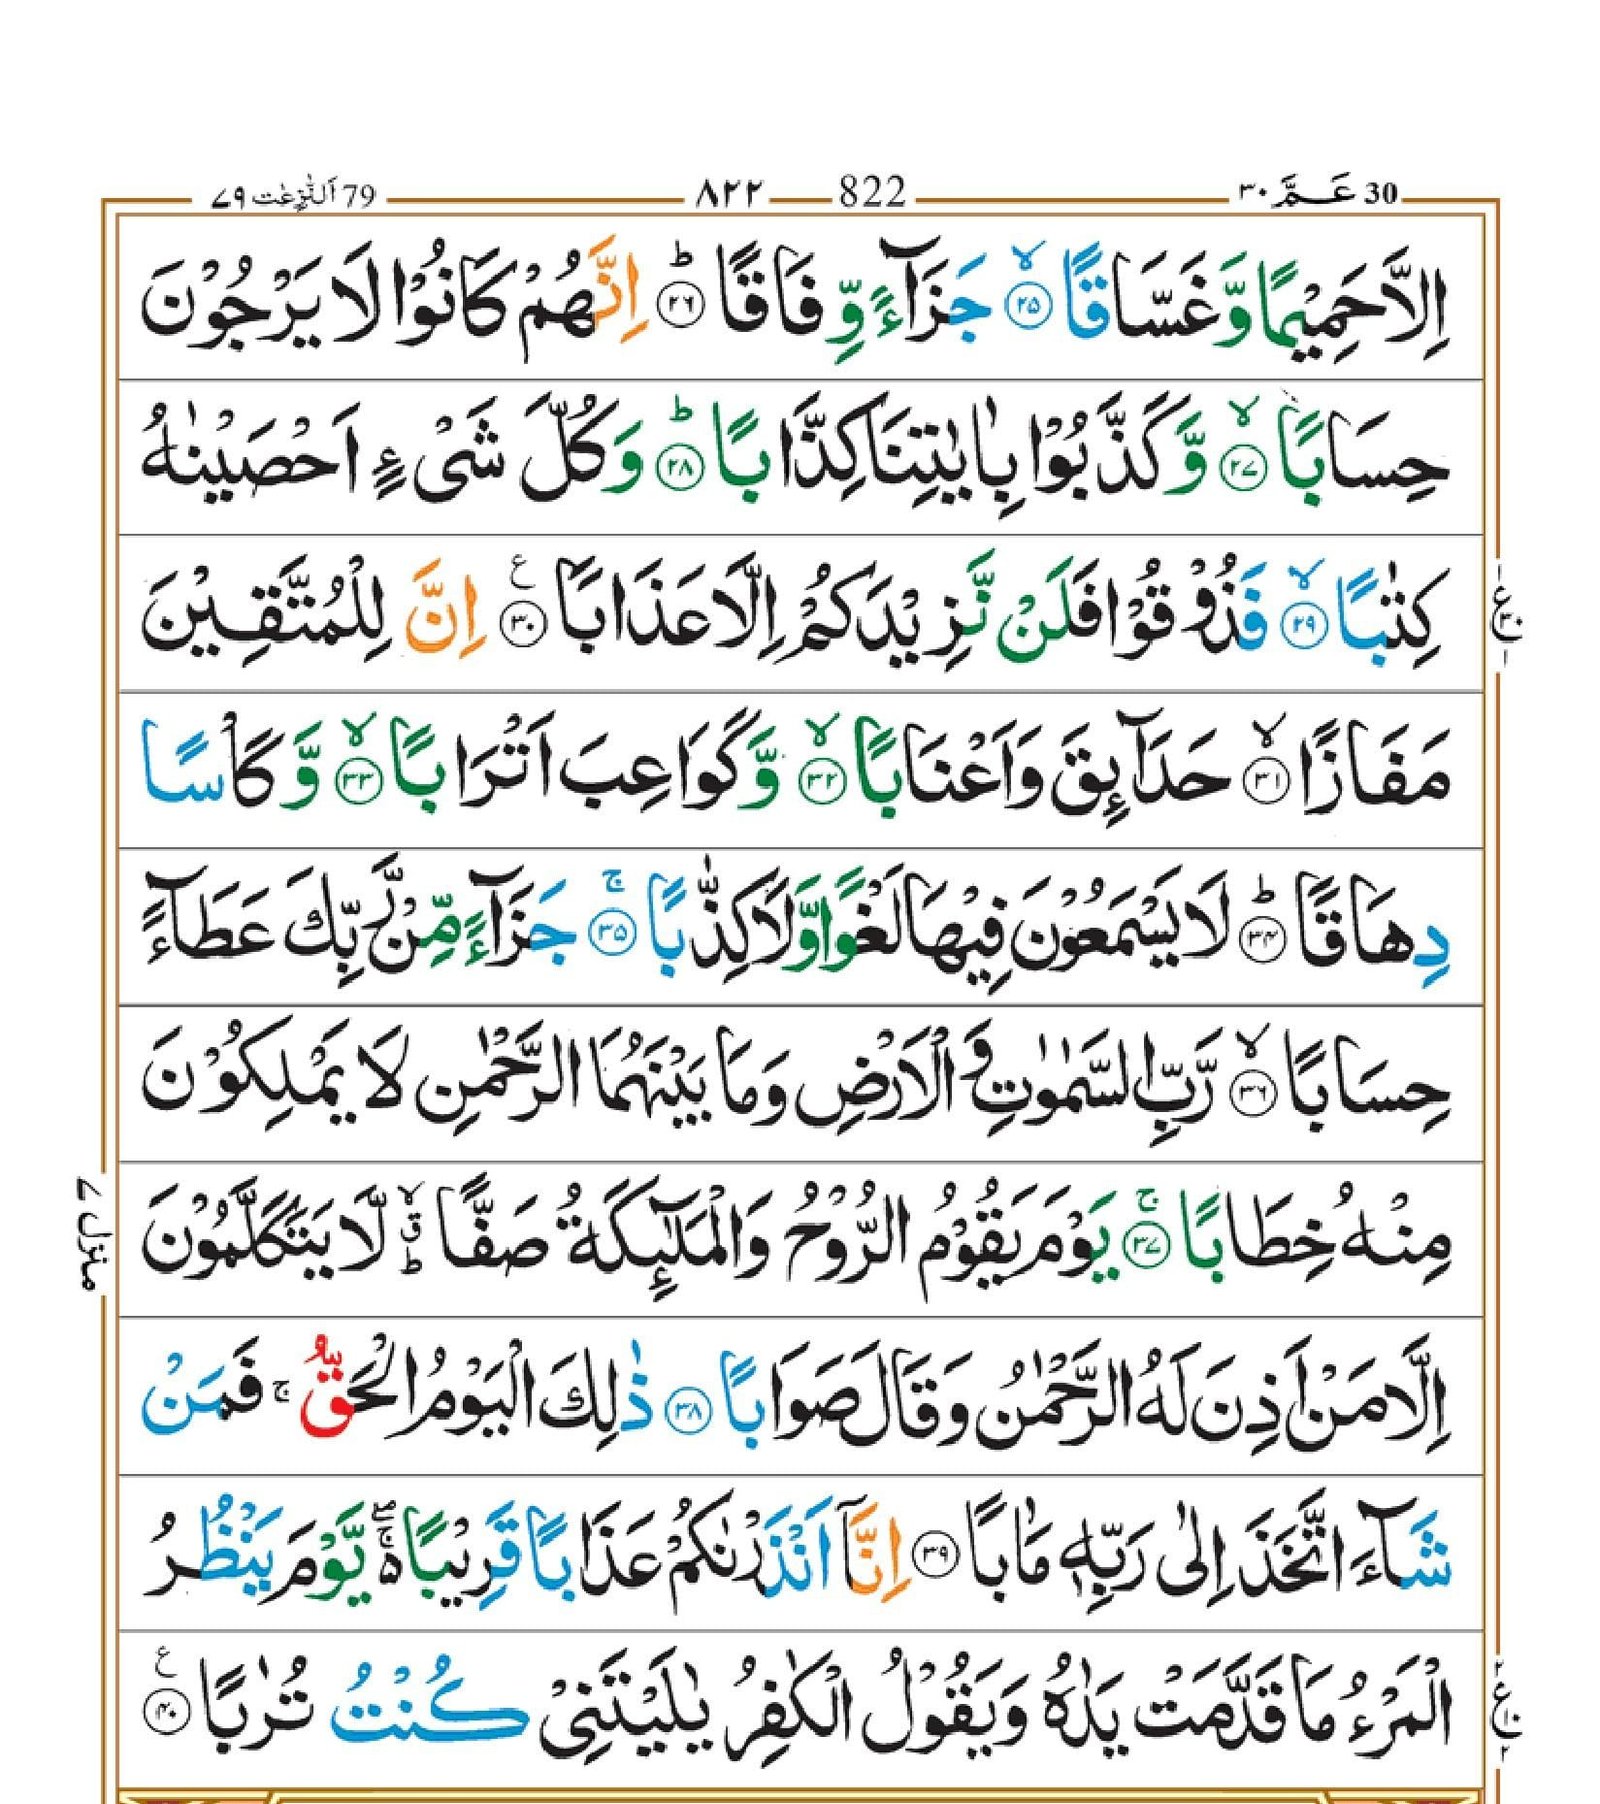 30 عَمَّ ٣٠ 822 ٨٢٢ 79 اَلنّٰزِعٰت ٧٩
اِلَّا حَمِيْمًا وَّغَسَّاقًا ۙ﴿۲۵﴾ جَزَآءً وِّفَاقًا ؕ﴿۲۶﴾ اِنَّهُمْ كَانُوْا لَا يَرْجُوْنَ
حِسَابًا ۙ﴿۲۷﴾ وَّكَذَّبُوْا بِاٰيٰتِنَا كِذَّابًا ؕ﴿۲۸﴾ وَكُلَّ شَىْءٍ اَحْصَيْنٰهُ
كِتٰبًا ۙ﴿۲۹﴾ فَذُوْقُوْا فَلَنْ نَّزِيْدَكُمْ اِلَّا عَذَابًا ﴿۳۰﴾ ع اِنَّ لِلْمُتَّقِيْنَ
مَفَازًا ۙ﴿۳۱﴾ حَدَآئِقَ وَاَعْنَابًا ۙ﴿۳۲﴾ وَّكَوَاعِبَ اَتْرَابًا ۙ﴿۳۳﴾ وَّكَاْسًا
دِهَاقًا ؕ﴿۳۴﴾ لَا يَسْمَعُوْنَ فِيْهَا لَغْوًا وَّلَا كِذّٰبًا ۚ﴿۳۵﴾ جَزَآءً مِّنْ رَّبِّكَ عَطَآءً
حِسَابًا ۙ﴿۳۶﴾ رَّبِّ السَّمٰوٰتِ وَالْاَرْضِ وَمَا بَيْنَهُمَا الرَّحْمٰنِ لَا يَمْلِكُوْنَ
مِنْهُ خِطَابًا ۚ﴿۳۷﴾ يَوْمَ يَقُوْمُ الرُّوْحُ وَالْمَلٰٓئِكَةُ صَفًّا ۙ ق ؕ لَّا يَتَكَلَّمُوْنَ
اِلَّا مَنْ اَذِنَ لَهُ الرَّحْمٰنُ وَقَالَ صَوَابًا ﴿۳۸﴾ ذٰلِكَ الْيَوْمُ الْحَقُّ ۚ فَمَنْ
شَآءَ اتَّخَذَ اِلٰى رَبِّهٖ مَاٰبًا ﴿۳۹﴾ اِنَّاۤ اَنْذَرْنٰكُمْ عَذَابًا قَرِيْبًا ۚۖ۬ ە يَّوْمَ يَنْظُرُ
الْمَرْءُ مَا قَدَّمَتْ يَدٰهُ وَيَقُوْلُ الْكٰفِرُ يٰلَيْتَنِىْ كُنْتُ تُرٰبًا ﴿۴۰﴾ ع
منزل ٧